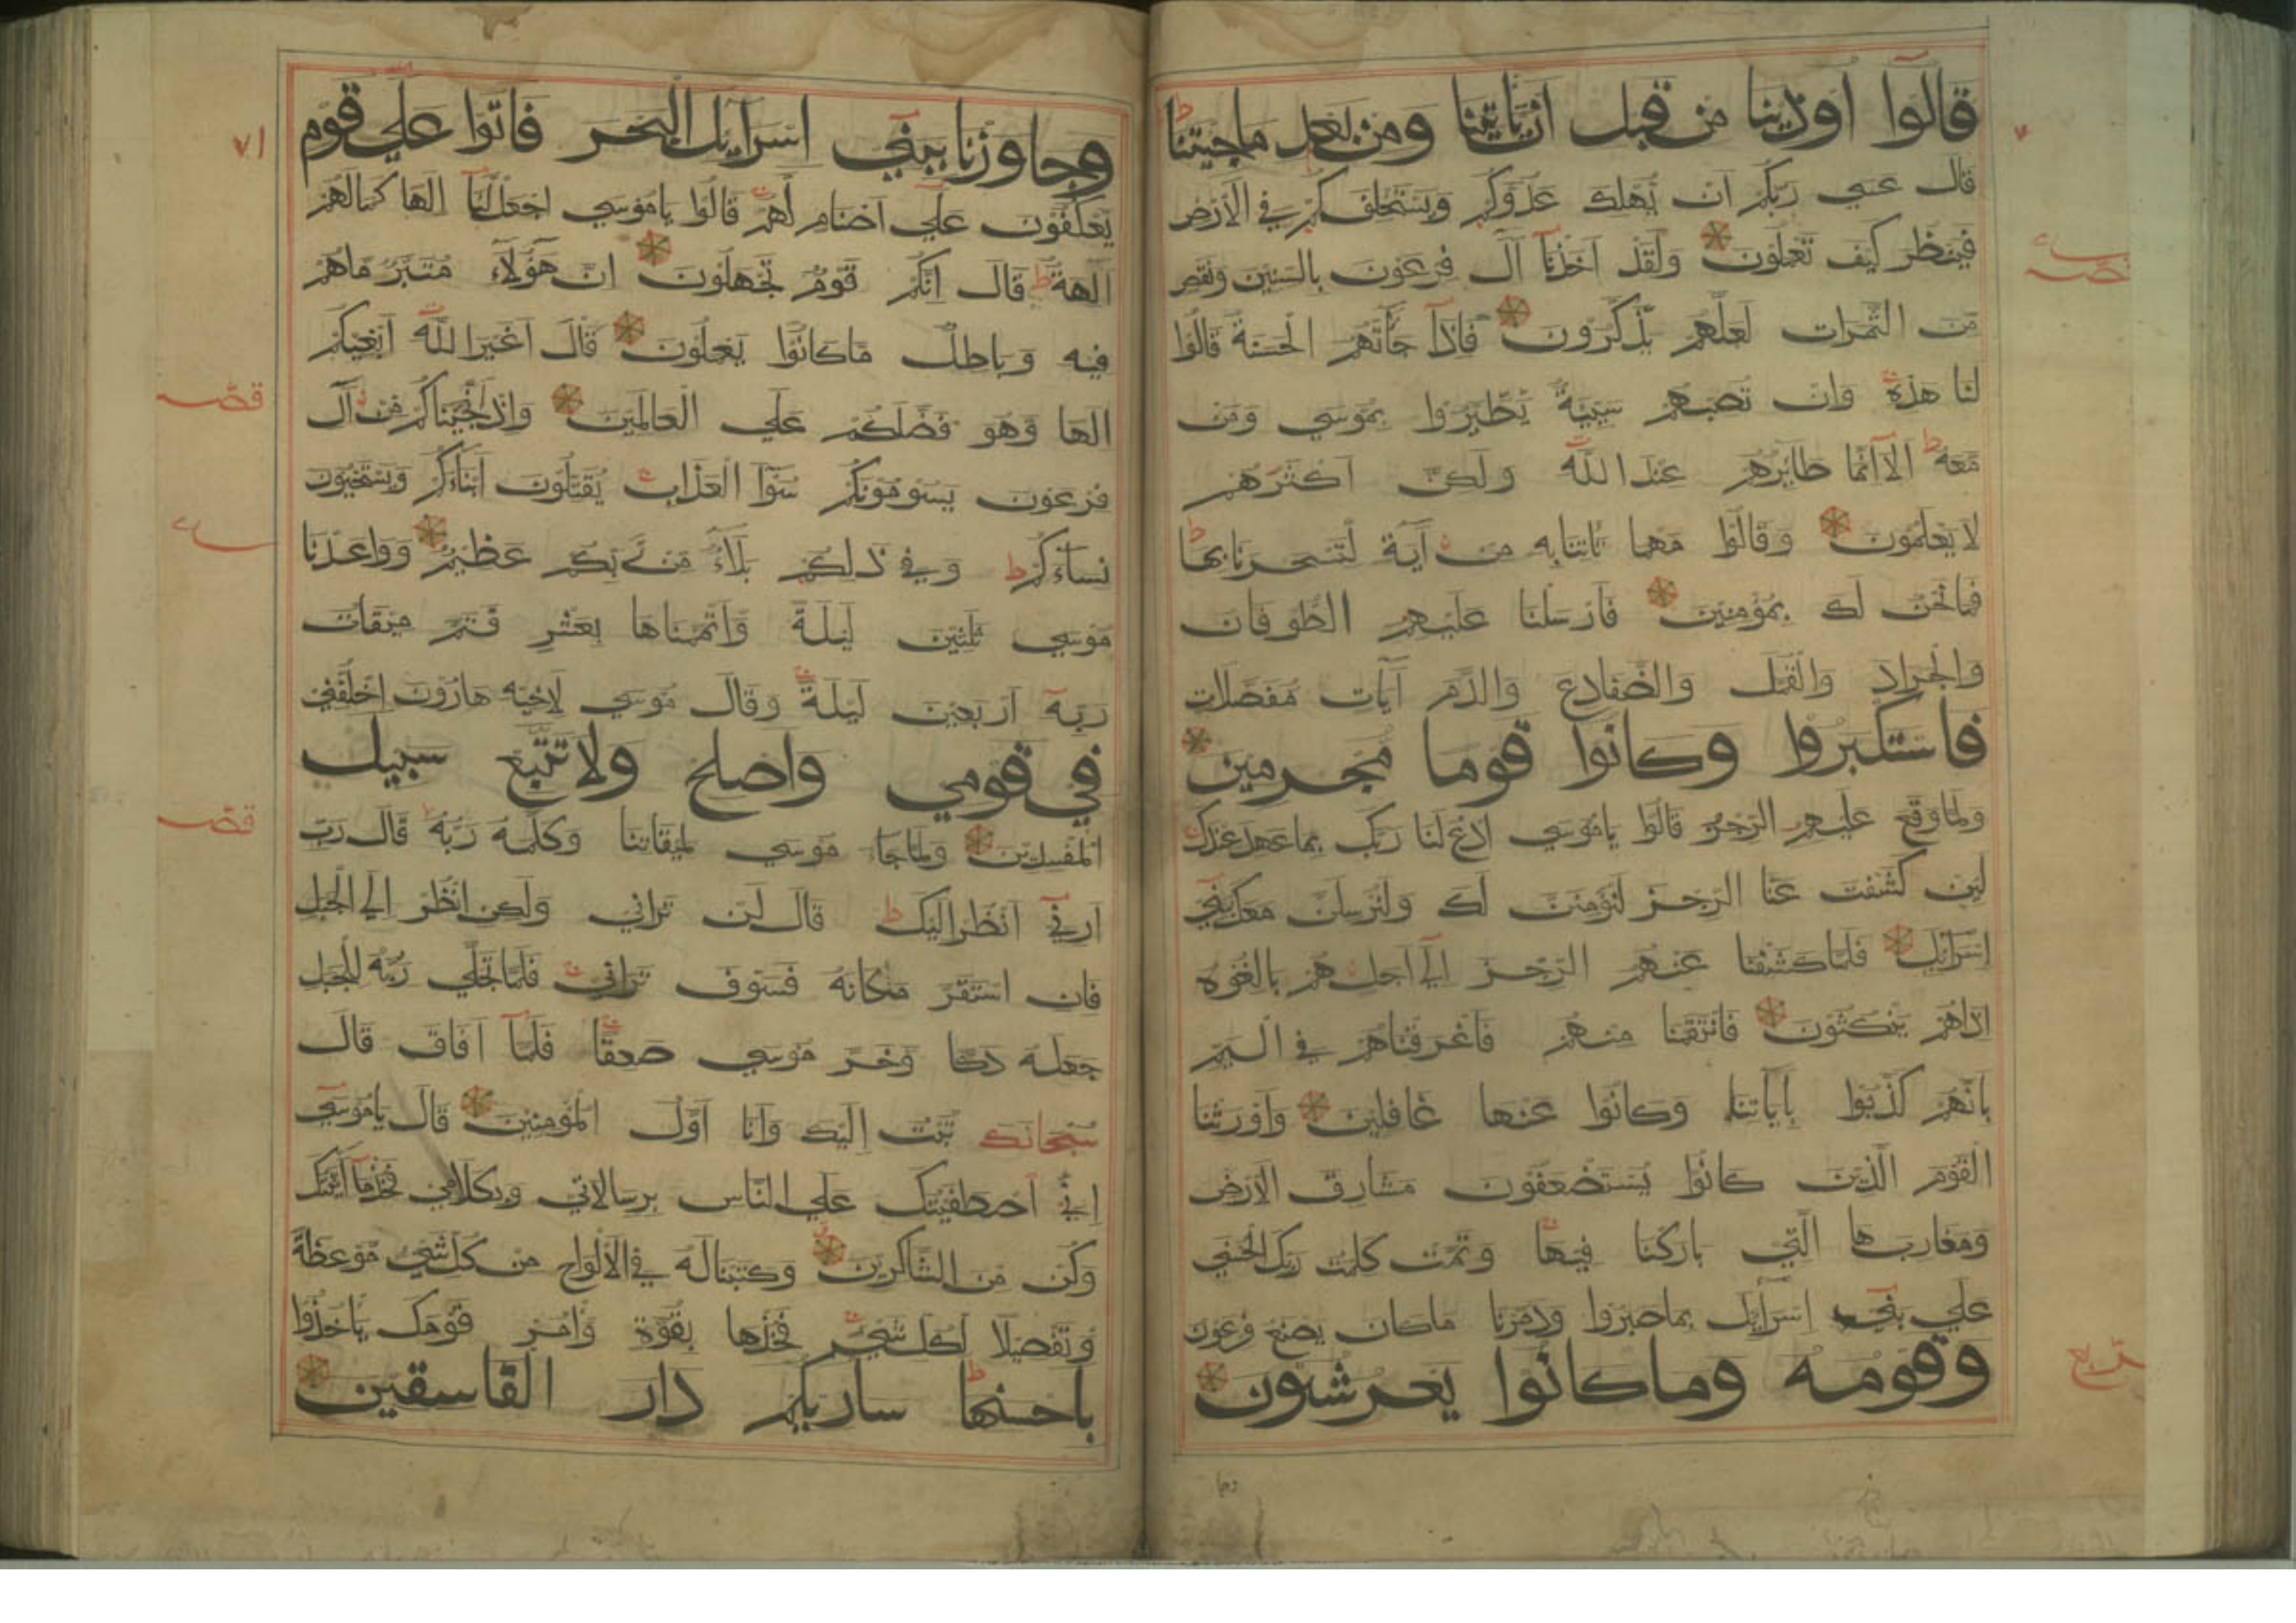 قالوا اوذينا من قبل ان تاتينا ومن بعد ما جيتنا
قال عسي ربكم ان يهلك عدوكم ويستخلفكم في الارض
فينظر كيف تعملون ولقد اخذنا آل فرعون بالسنين ونقص
من الثمرات لعلهم يذكرون فاذا جآتهم الحسنة قالوا
لنا هذه وان تصبهم سيية يطيروا بموسي ومن
معه الا انما طايرهم عند الله ولكن اكثرهم
لا يعلمون وقالوا مهما تاتنا به من آية لتسحرنا بها
فما نحن لك بمؤمنين فارسلنا عليهم الطوفان
والجراد والقمل والضفادع والدم آيات مفصلات
فاستكبروا وكانوا قوما مجرمين
ولما وقع عليهم الرجز قالوا ياموسي ادع لنا ربك بما عهد عندك
لين كشفت عنا الرجز لنؤمنن لك ولنرسلن معك بني
اسرائيل فلما كشفنا عنهم الرجز الي اجل هم بالغوه
اذا هم ينكثون فانتقمنا منهم فاغرقناهم في اليم
بانهم كذبوا بآياتنا وكانوا عنها غافلين واورثنا
القوم الذين كانوا يستضعفون مشارق الارض
ومغاربها التي باركنا فيها وتمت كلمت ربك الحسني
علي بني اسرآيل بما صبروا ودمرنا ماكان يصنع فرعون
وقومه وما كانوا يعرشون
ربع
٧١
وجاوزنا ببني اسرايل البحر فاتوا علي قوم
يعكفون علي اصنام لهم قالوا ياموسي اجعل لنا الها كما لهم
آلهة قال انكم قوم تجهلون ان هؤلاء متبر ما هم
فيه وباطل ما كانوا يعملون قال اغير الله ابغيكم
الها وهو فضلكم علي العالمين واذ انجيناكم من آل
فرعون يسومونكم سوء العذاب يقتلون ابناءكم ويستحيون
نساءكم وفي ذلكم بلاء من ربكم عظيم وواعدنا
موسي ثلثين ليلة واتممناها بعشر فتم ميقات
ربه اربعين ليلة وقال موسي لاخيه هارون اخلفني
في قومي واصلح ولا تتبع سبيل
المفسدين ولما جاء موسي لميقاتنا وكلمه ربه قال رب
ارني انظر اليك قال لن تراني ولكن انظر الي الجبل
فان استقر مكانه فسوف تراني فلما تجلي ربه للجبل
جعله دكا وخر موسي صعقا فلما افاق قال
سبحانك تبت اليك وانا اول المؤمنين قال ياموسي
اني اصطفيتك علي الناس برسالاتي وبكلامي فخذ ما آتيتك
وكن من الشاكرين وكتبنا له في الالواح من كل شيء موعظة
وتفصيلا لكل شيء فخذها بقوة وامر قومك ياخذوا
باحسنها ساريكم دار الفاسقين